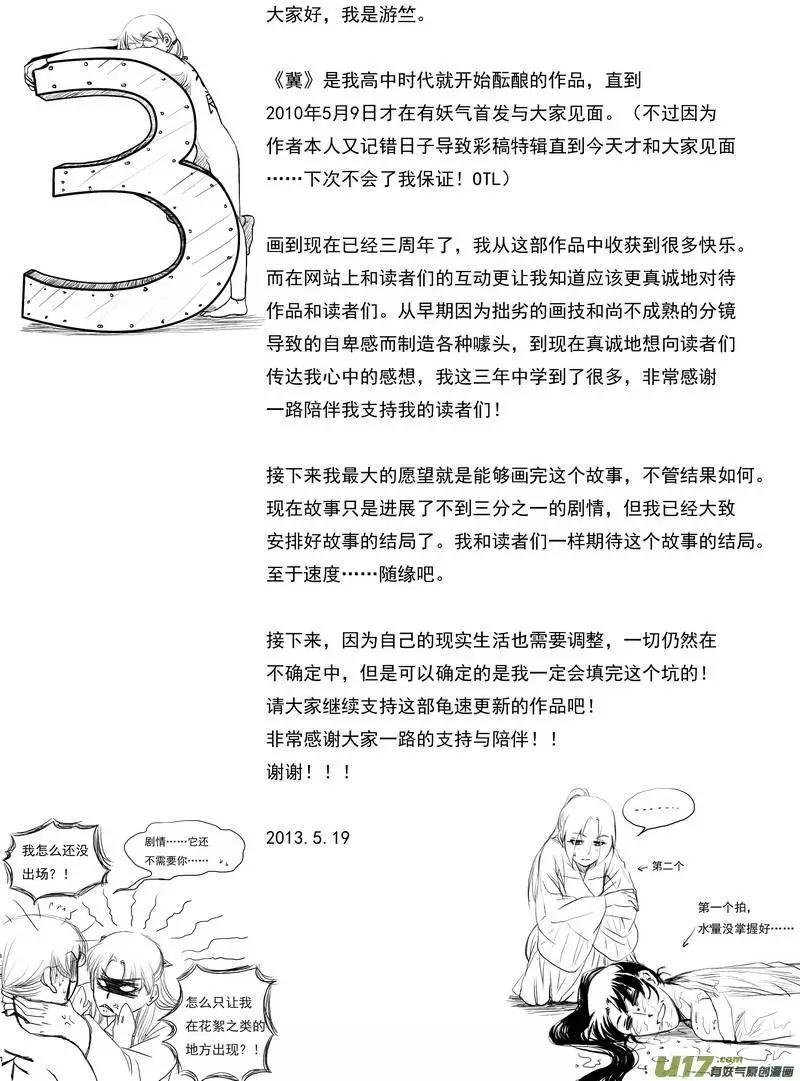 大家好，我是游竺。
《冀》是我高中时代就开始酝酿的作品，直到
2010年5月9日才在有妖气首发与大家见面。（不过因为
作者本人又记错日子导致彩稿特辑直到今天才和大家见面
……下次不会了我保证！OTL）
画到现在已经三周年了，我从这部作品中收获到很多快乐。
而在网站上和读者们的互动更让我知道应该更真诚地对待
作品和读者们。从早期因为拙劣的画技和尚不成熟的分镜
导致的自卑感而制造各种噱头，到现在真诚地想向读者们
传达我心中的感想，我这三年中学到了很多，非常感谢
一路陪伴我支持我的读者们！
接下来我最大的愿望就是能够画完这个故事，不管结果如何。
现在故事只是进展了不到三分之一的剧情，但我已经大致
安排好故事的结局了。我和读者们一样期待这个故事的结局。
至于速度……随缘吧。
接下来，因为自己的现实生活也需要调整，一切仍然在
不确定中，但是可以确定的是我一定会填完这个坑的！
请大家继续支持这部龟速更新的作品吧！
非常感谢大家一路的支持与陪伴！！
谢谢！！！
2013.5.19
3
我怎么还没
出场？！
剧情……它还
不需要你……
怎么只让我
在花絮之类的
地方出现？！
……
第二个
第一个拍，
水量没掌握好……
U17.com
有妖气原创漫画